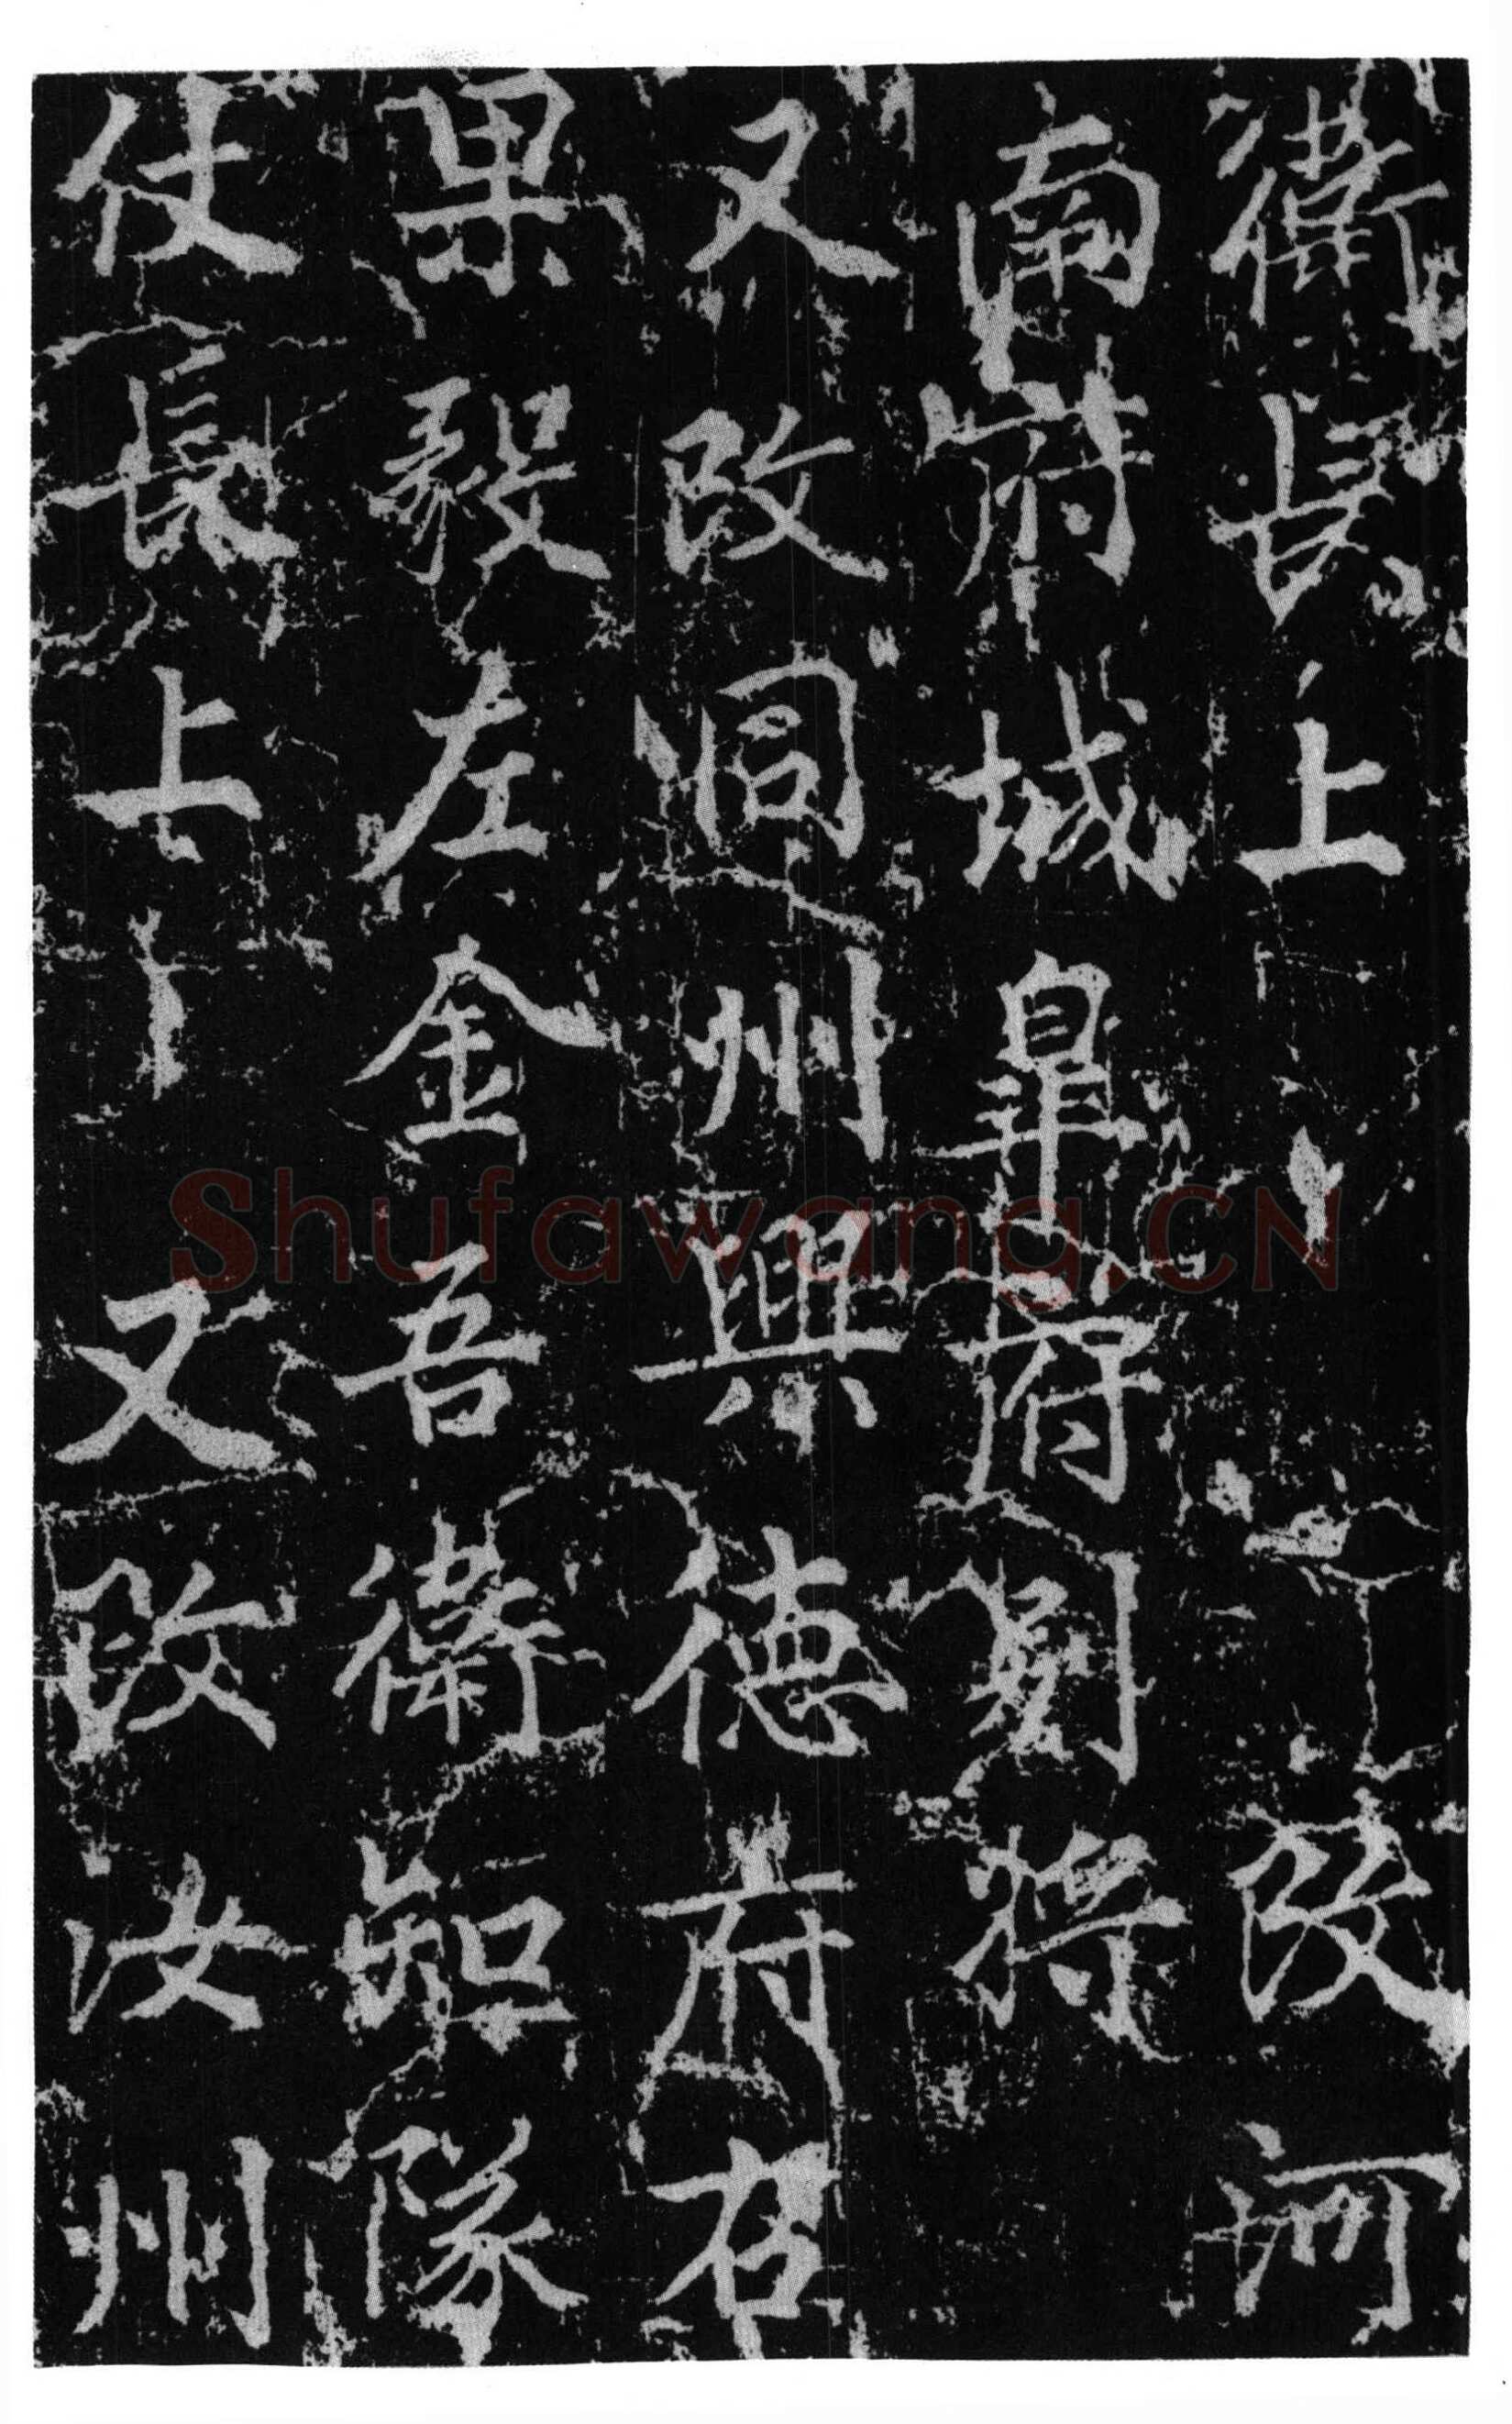 衛長上改河
南府城皐府別將
又改同州興德府右
果毅左金吾衛知隊
仗長上又改汝州
Shufawang.CN